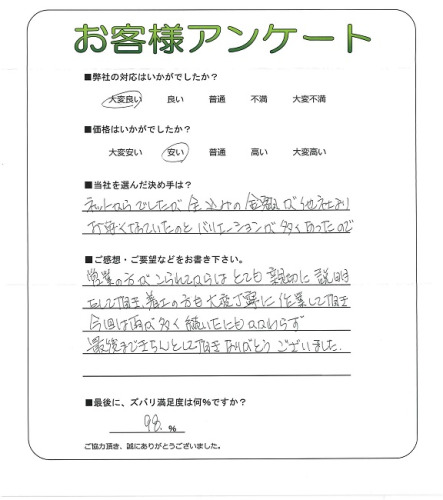 お客様アンケート
■弊社の対応はいかがでしたか？
大変良い 良い 普通 不満 大変不満
■価格はいかがでしたか？
大変安い 安い 普通 高い 大変高い
■当社を選んだ決め手は？
ネットからでしたが 全込みの金額が他社より
お安くなっていたのと バリエーションが多くあったので
■ご感想・ご要望などをお書き下さい。
営業の方がこられてからは とても 親切に 説明
をして頂き、着工の方も大変丁寧に 作業して頂き
今回は雨が多く続いたにもかかわらず
最後まできちんとして頂きありがとう ございました.
■最後に、ズバリ満足度は何％ですか？
98. ％
ご協力頂き、誠にありがとうございました。